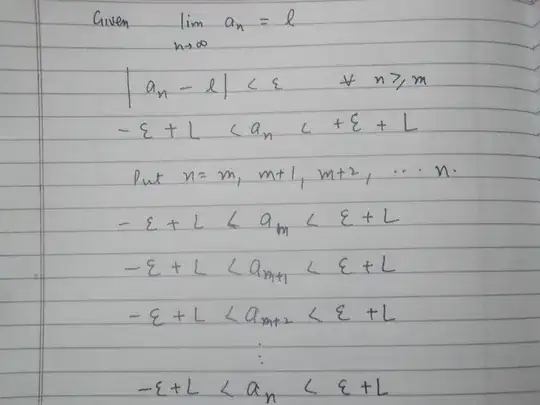 Given lim an = l
n→∞
| an - l | < ε ∀ n ≥, m
- ε + L < an < + ε + L
Put n = m, m+1, m+2, ... n.
- ε + L < am < ε + L
- ε + L < am+1 < ε + L
- ε + L < am+2 < ε + L
⋮
- ε + L < an < ε + L